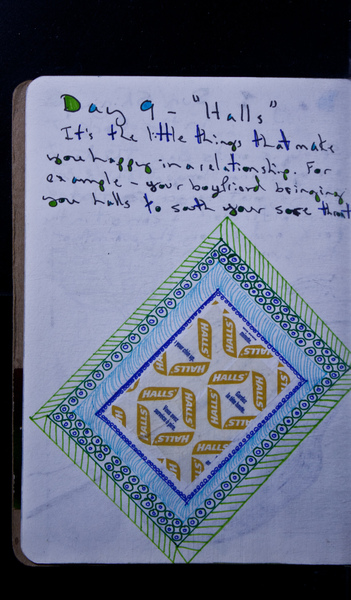 Day 9 - "Halls"
It's the little things that make
you happy in a relationship. For
example - your boyfriend bringing
you halls to sooth your sore throat
HALLS
HALLS
HALLS
HALLS
HALLS
HALLS
HALLS
HALLS
HALLS